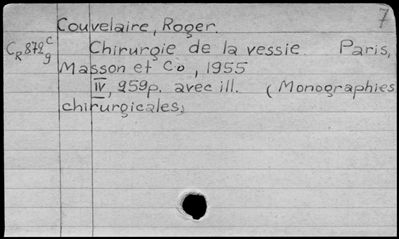 7
Couvelaire, Roger.
CR 872 c g Chirurgie de la vessie. Paris,
Masson et Co, 1955
IV, 259p. avec ill. (Monographies
chirurgicales)